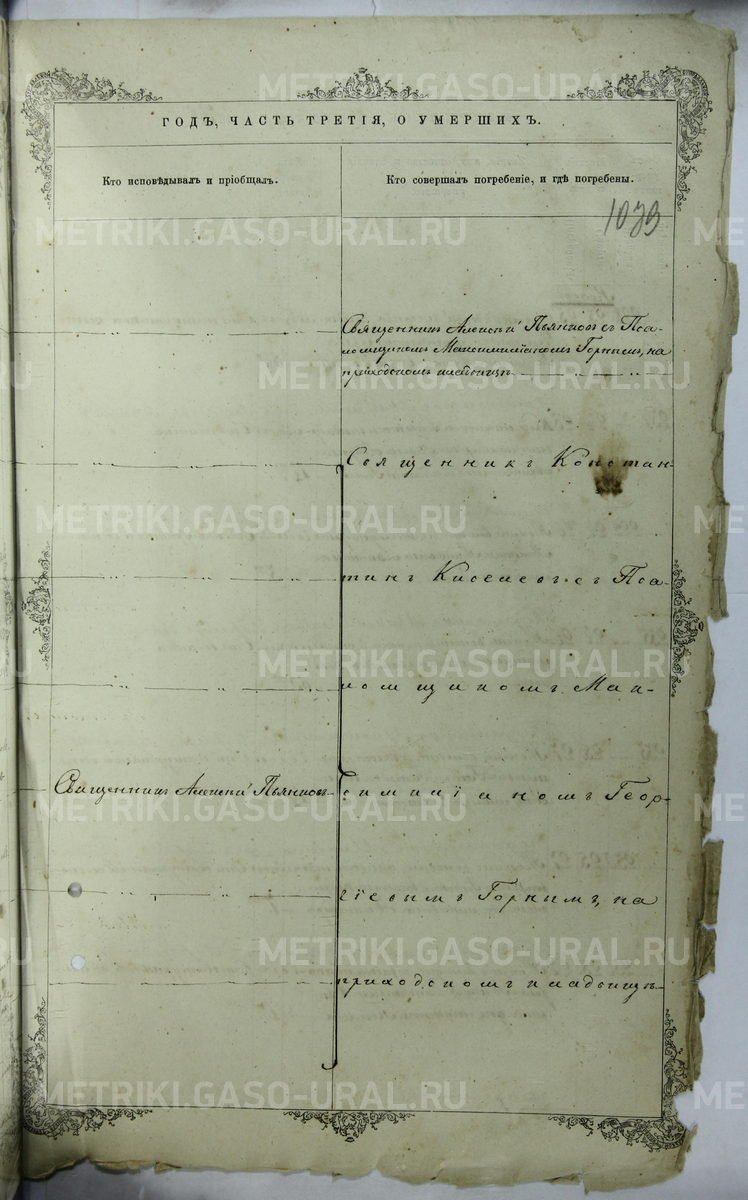 ГОДЪ, ЧАСТЬ ТРЕТІЯ, О УМЕРШИХЪ.
Кто исповѣдывалъ и пріобщалъ.
Кто совершалъ погребеніе, и гдѣ погребены.
Священникъ Алексѣй Пьянковъ съ Пса-
ломщикомъ Максимиліаномъ Горнымъ, на
приходскомъ кладбищѣ
Священникъ Констан-
тинъ Киселевъ съ Пса-
ломщикомъ Мак-
Священникъ Алексѣй Пьянковъ
симиліаномъ Геор-
гіевымъ Горнымъ, на
приходскомъ кладбищѣ
METRIKI.GASO-URAL.RU